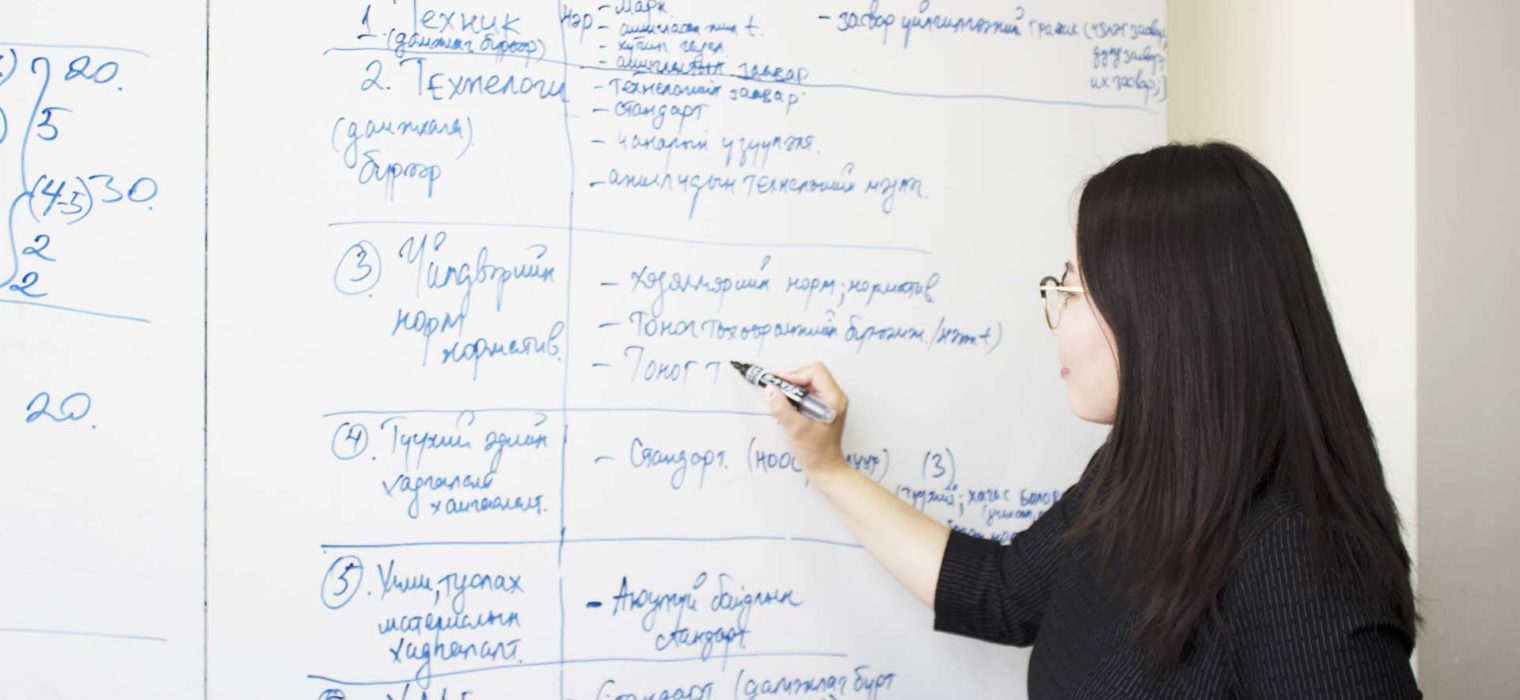 ) 20.
) 5
(4-5) 30.
2
2
20.
1. Техник
(дамжлага бүрээр)
нэр - марк
- хүчин чадал
- ашиглалтын заавар
- засвар үйлчилгээний график (үзлэг засвар,
дунд засвар,
их засвар,)
2. Технологи
(дамжлага)
бүрээр
- технологийн заавар
- стандарт
- чанарын үзүүлэлт.
- ажилчдын технологийн
3 Үйлдвэрийн
норм
норматив.
- норм, норматив
- Тоног төхөөрөмжийн
- Тоног т
4. Түүхий эдийн
хадгалалт
хамгаалалт.
- Стандарт. (3)
(түүхий, хагас
5. Хими, туслах
материалын
хадгалалт.
- Аюулгүй байдлын
стандарт.
- Стандарт (дамжлага бүрт